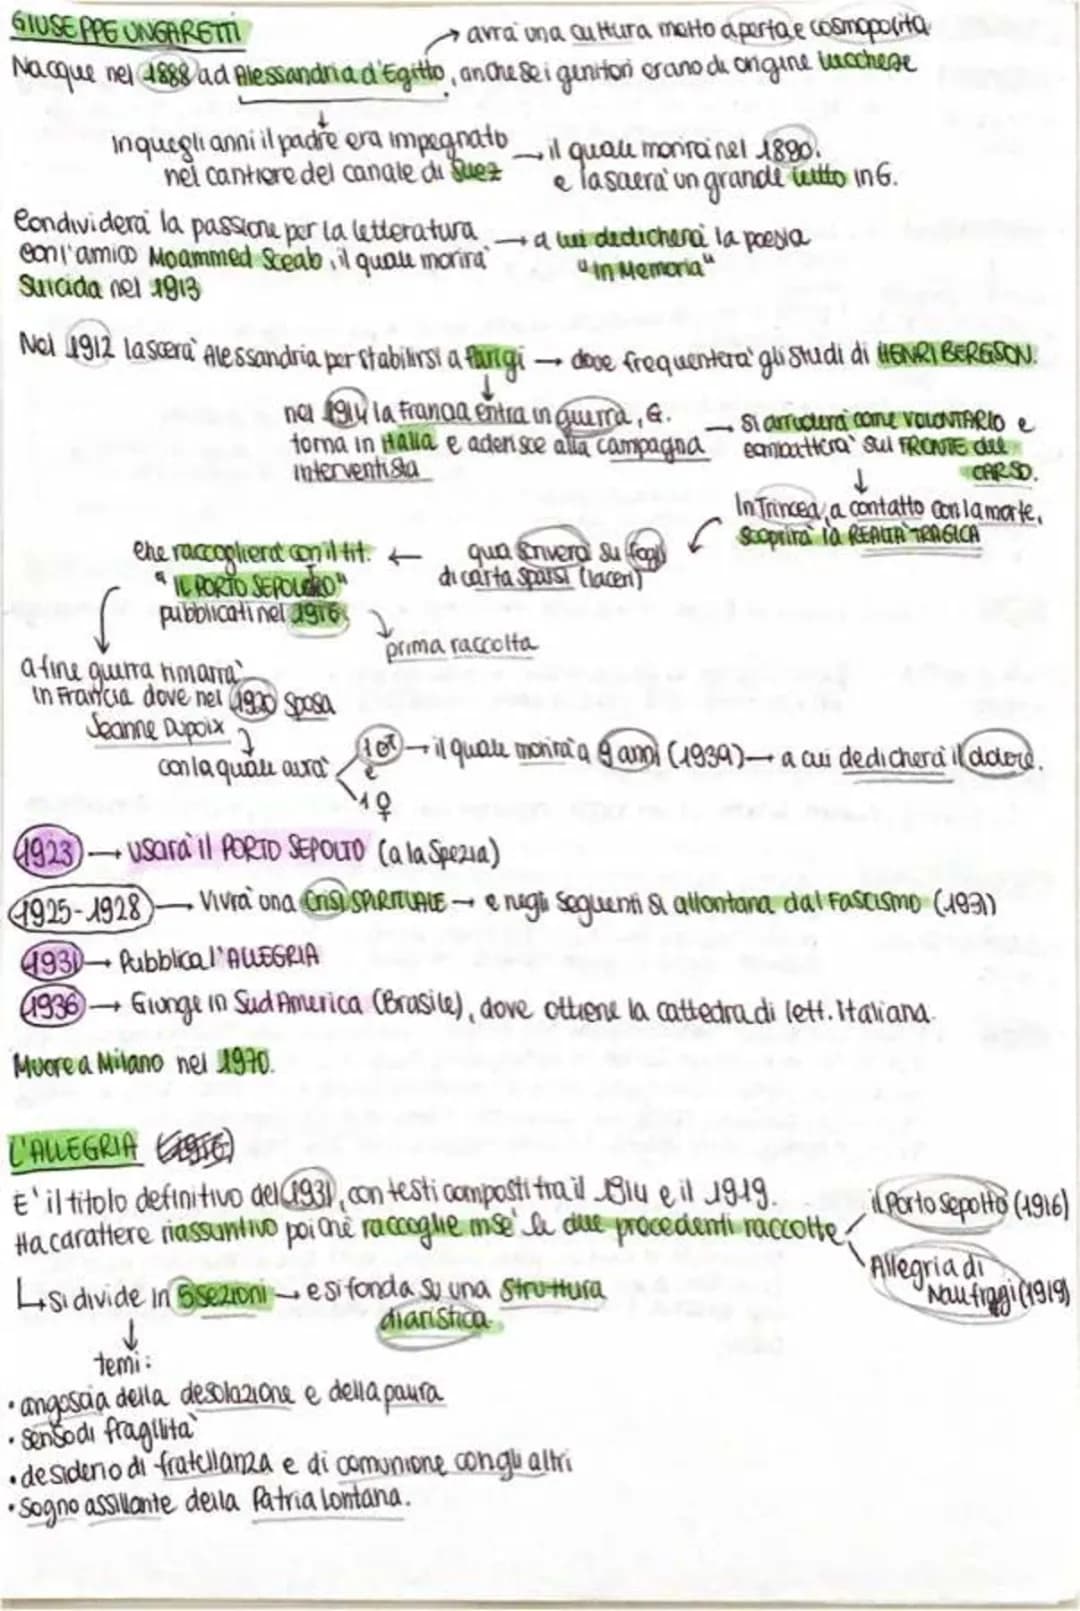 GIUSEPPE UNGARETTI
→ avrà una cultura molto aperta e cosmopolita
Nacque nel 1888 ad Alessandria d'Egitto, anche se i genitori erano di origine lucchese
In quegli anni il padre era impegnato → il quale morirà nel 1890.
nel cantiere del canale di Suez e lascerà un grande lutto in G.
Condividerà la passione per la letteratura → a lui dedicherà la poesia
con l'amico Moammed Sceab, il quale morirà "In Memoria"
Suicida nel 1913
Nel 1912 lascerà Alessandria per stabilirsi a Parigi → dove frequenterà gli Studi di HENRI BERGSON.
nel 1914 la Francia entra in guerra, G. → Si arruderà come VOLONTARIO e
torna in Italia e aderisce alla campagna combatterà sul FRONTE del
interventista CARSO.
In Trincea, a contatto con la morte,
scoprirà la REALTÀ TRAGICA
che raccoglierà con il tit. ← qua scriverà su fogli
"IL PORTO SEPOLTO" di carta sparsi (laceri)
pubblicati nel 1916
prima raccolta
a fine guerra rimarrà
in Francia dove nel 1920 sposa
Jeanne Dupoix
con la quale avrà 1♂ → il quale morirà a 9 anni (1939) → a cui dedicherà il dolore.
e
1♀
1923 → usarà il PORTO SEPOLTO (a la Spezia)
1925-1928 → Vivrà una Crisi SPIRITUALE → e negli seguenti si allontana dal FASCISMO (1931)
1931 → Pubblica l'ALLEGRIA
1936 → Giunge in Sud America (Brasile), dove ottiene la cattedra di lett. Italiana.
Muore a Milano nel 1970.
L'ALLEGRIA
E' il titolo definitivo del 1931, con testi composti tra il 1914 e il 1919.
Ha carattere riassuntivo poichè raccoglie in sè le due precedenti raccolte
il Porto Sepolto (1916)
Allegria di
Naufragi (1919)
↳ si divide in 5 sezioni → e si fonda su una struttura
diaristica
temi:
• angoscia della desolazione e della paura
• senso di fragilità
• desiderio di fratellanza e di comunione con gli altri
• Sogno assillante della Patria lontana.